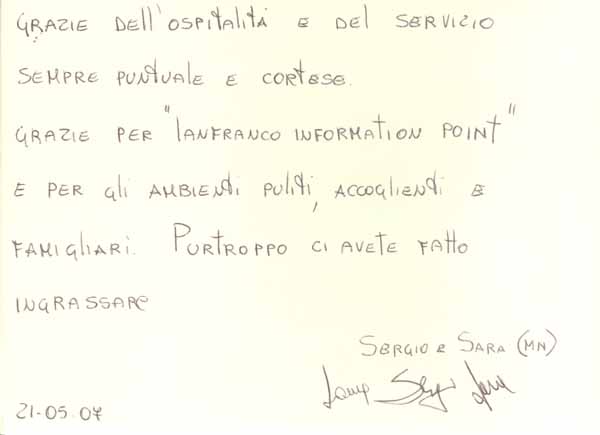 GRAZIE DELL'OSPITALITÁ E DEL SERVIZIO
SEMPRE PUNTUALE E CORTESE.
GRAZIE PER "LANFRANCO INFORMATION POINT"
E PER GLI AMBIENTI PULITI, ACCOGLIENTI E
FAMIGLIARI. PURTROPPO CI AVETE FATTO
INGRASSARE
SERGIO E SARA (MN)
21-05-07